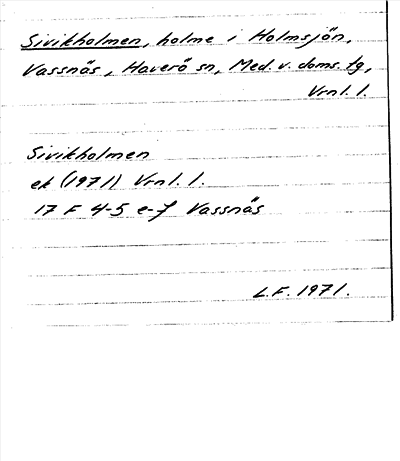 Sivikholmen, holme i Holmsjön,
Vassnäs, Haverö sn, Med. v. doms. tg,
Vrnl. l.
Sivikholmen
ek (1971) Vrnl. l.
17 F 4-5 e-f Vassnäs
L.F. 1971.